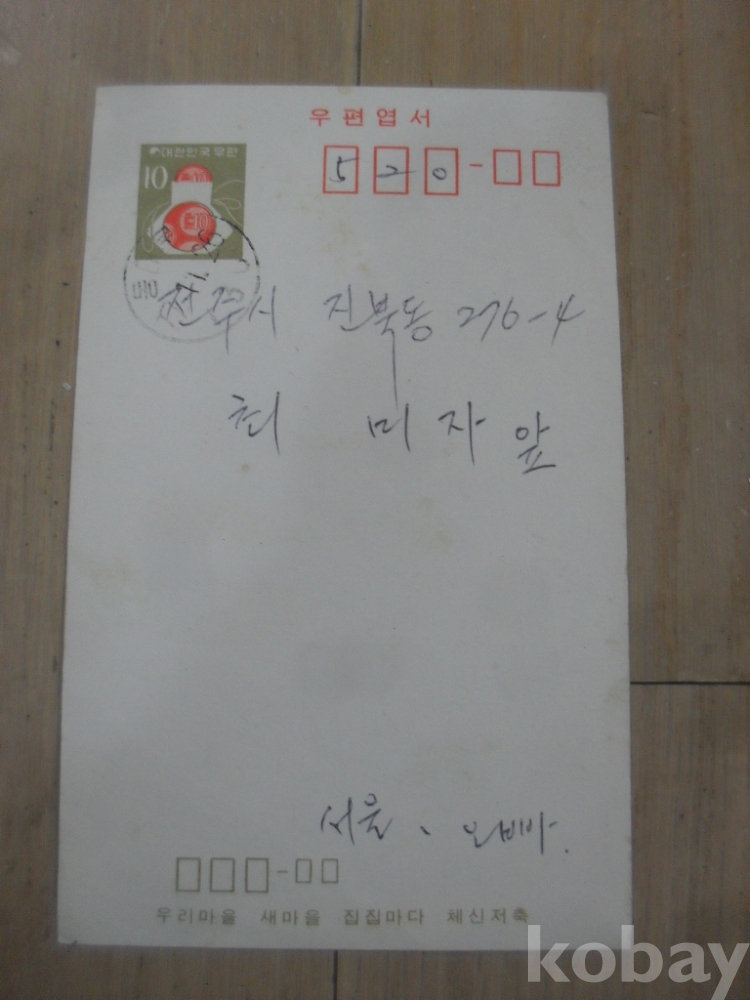 우편엽서
대한민국우편
10
520-
전주시 진북동 276-4
최 미자 앞
서울、오빠.
우리마을 새마을 집집마다 체신저축
kobay